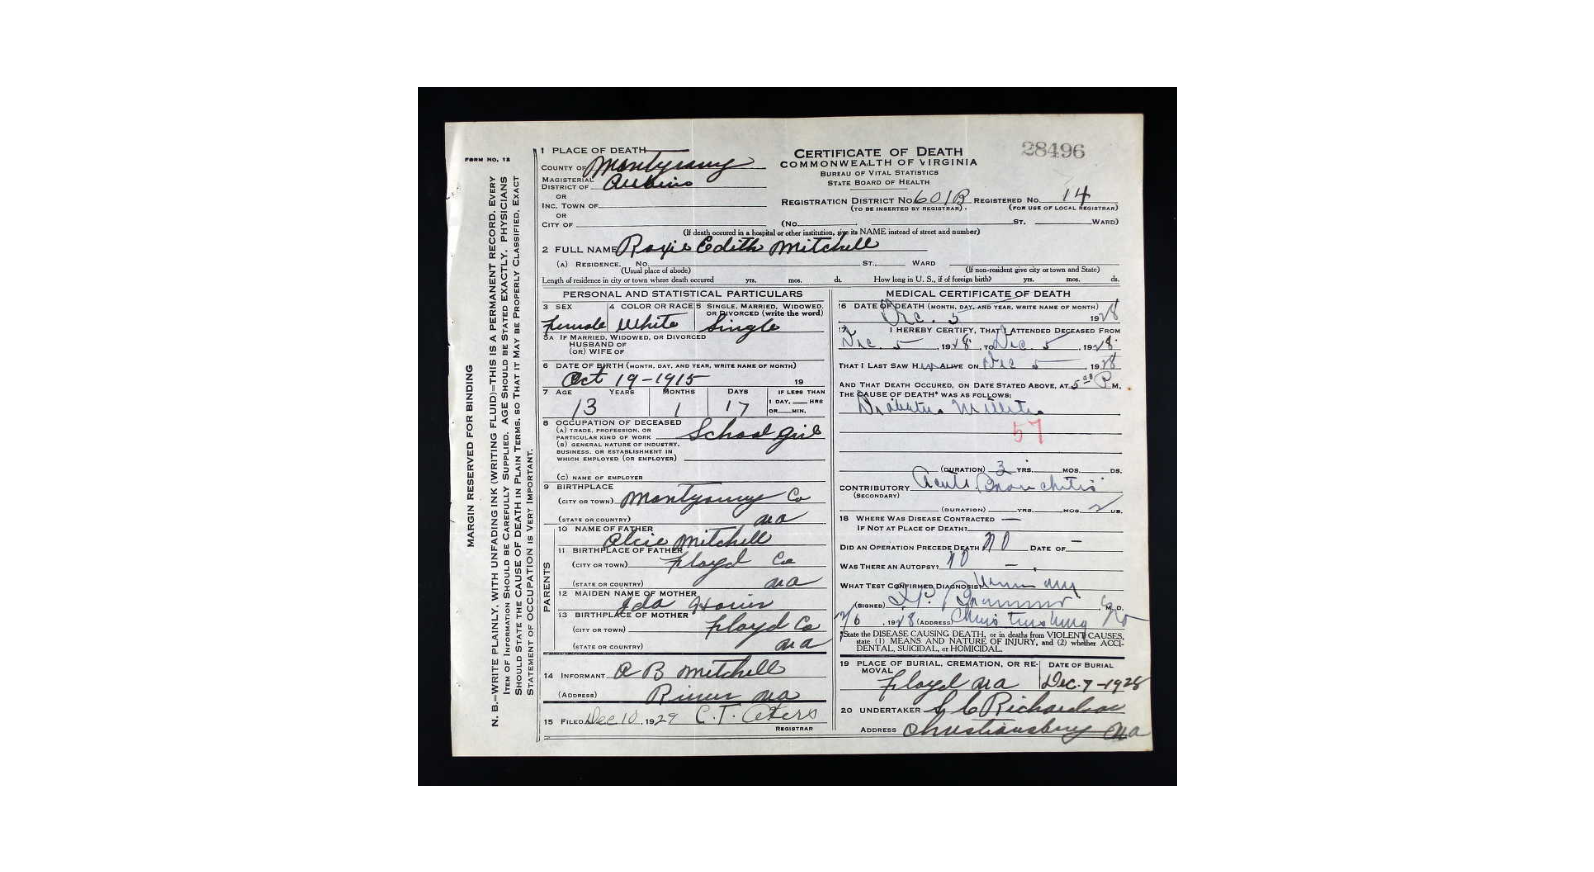 FORM NO. 12
MARGIN RESERVED FOR BINDING
N. B.—WRITE PLAINLY, WITH UNFADING INK (WRITING FLUID)—THIS IS A PERMANENT RECORD. EVERY
ITEM OF INFORMATION SHOULD BE CAREFULLY SUPPLIED. AGE SHOULD BE STATED EXACTLY. PHYSICIANS
SHOULD STATE THE CAUSE OF DEATH IN PLAIN TERMS, SO THAT IT MAY BE PROPERLY CLASSIFIED. EXACT
STATEMENT OF OCCUPATION IS VERY IMPORTANT.
1 PLACE OF DEATH
COUNTY OF Montgomery
MAGISTERIAL
DISTRICT OF
OR
INC. TOWN OF
OR
CITY OF
CERTIFICATE OF DEATH
COMMONWEALTH OF VIRGINIA
BUREAU OF VITAL STATISTICS
STATE BOARD OF HEALTH
28496
REGISTRATION DISTRICT NO. 601B REGISTERED NO. 14
(TO BE INSERTED BY REGISTRAR) (FOR USE OF LOCAL REGISTRAR)
(NO. ST. WARD)
(If death occured in a hospital or other institution, give its NAME instead of street and number)
2 FULL NAME Roxie Edith Mitchell
(A) RESIDENCE. NO. ST. WARD
(Usual place of abode) (If non-resident give city or town and State)
Length of residence in city or town where death occured yrs. mos. ds. How long in U. S., if of foreign birth? yrs. mos. ds.
PERSONAL AND STATISTICAL PARTICULARS
3 SEX 4 COLOR OR RACE 5 SINGLE, MARRIED, WIDOWED,
OR DIVORCED (write the word)
Female White Single
5A IF MARRIED, WIDOWED, OR DIVORCED
HUSBAND OF
(OR) WIFE OF
6 DATE OF BIRTH (MONTH, DAY, AND YEAR, WRITE NAME OF MONTH)
Oct 19-1915 19
7 AGE YEARS MONTHS DAYS IF LESS THAN
13 1 17 1 DAY, HRS
OR MIN.
8 OCCUPATION OF DECEASED
(A) TRADE, PROFESSION, OR
PARTICULAR KIND OF WORK School girl
(B) GENERAL NATURE OF INDUSTRY,
BUSINESS, OR ESTABLISHMENT IN
WHICH EMPLOYED (OR EMPLOYER)
(C) NAME OF EMPLOYER
9 BIRTHPLACE
(CITY OR TOWN) Montgomery Co
(STATE OR COUNTRY) Va
PARENTS
10 NAME OF FATHER
Mitchell
11 BIRTHPLACE OF FATHER
(CITY OR TOWN) Floyd Co
(STATE OR COUNTRY) Va
12 MAIDEN NAME OF MOTHER
Ida
13 BIRTHPLACE OF MOTHER
(CITY OR TOWN) Floyd Co
(STATE OR COUNTRY) Va
14 INFORMANT A B Mitchell
(ADDRESS) Riner Va
15 FILED Dec 10, 1929 C. T.
REGISTRAR
MEDICAL CERTIFICATE OF DEATH
16 DATE OF DEATH (MONTH, DAY, AND YEAR, WRITE NAME OF MONTH)
Dec. 5 1928
17 I HEREBY CERTIFY, THAT I ATTENDED DECEASED FROM
Dec. 5, 1928, TO Dec. 5, 1928.
THAT I LAST SAW H ALIVE ON Dec 5 1928
AND THAT DEATH OCCURED, ON DATE STATED ABOVE, AT 5 P M.
THE CAUSE OF DEATH* WAS AS FOLLOWS:
Diabetes Mellitis
57
(DURATION) 3 YRS. MOS. DS.
CONTRIBUTORY Acute Bronchitis
(SECONDARY)
(DURATION) YRS. MOS. 2 DS.
18 WHERE WAS DISEASE CONTRACTED —
IF NOT AT PLACE OF DEATH?
DID AN OPERATION PRECEDE DEATH NO DATE OF —
WAS THERE AN AUTOPSY? NO — .
WHAT TEST CONFIRMED DIAGNOSIS
(SIGNED) M. D.
, 1928 (ADDRESS) Christiansburg
*State the DISEASE CAUSING DEATH, or in deaths from VIOLENT CAUSES,
state (1) MEANS AND NATURE OF INJURY, and (2) whether ACCI-
DENTAL, SUICIDAL, or HOMICIDAL.
19 PLACE OF BURIAL, CREMATION, OR RE-
MOVAL DATE OF BURIAL
Floyd Va Dec. 7-1928
20 UNDERTAKER Richardson
ADDRESS Christiansburg Va